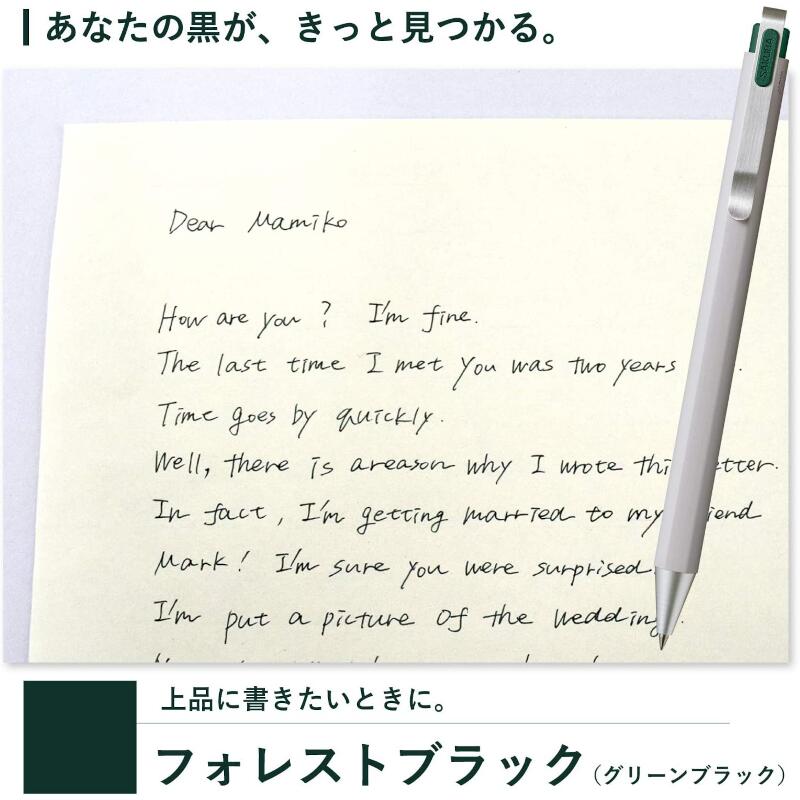 あなたの黒が、きっと見つかる。
SAKURA
Dear Mamiko
How are you? I'm fine.
The last time I met you was two years
Time goes by quickly.
Well, there is a reason why I wrote thi etter.
In fact, I'm getting married to my iend
Mark! I'm sure you were surprised.
I'm put a picture of the wedding.
上品に書きたいときに。
フォレストブラック(グリーンブラック)